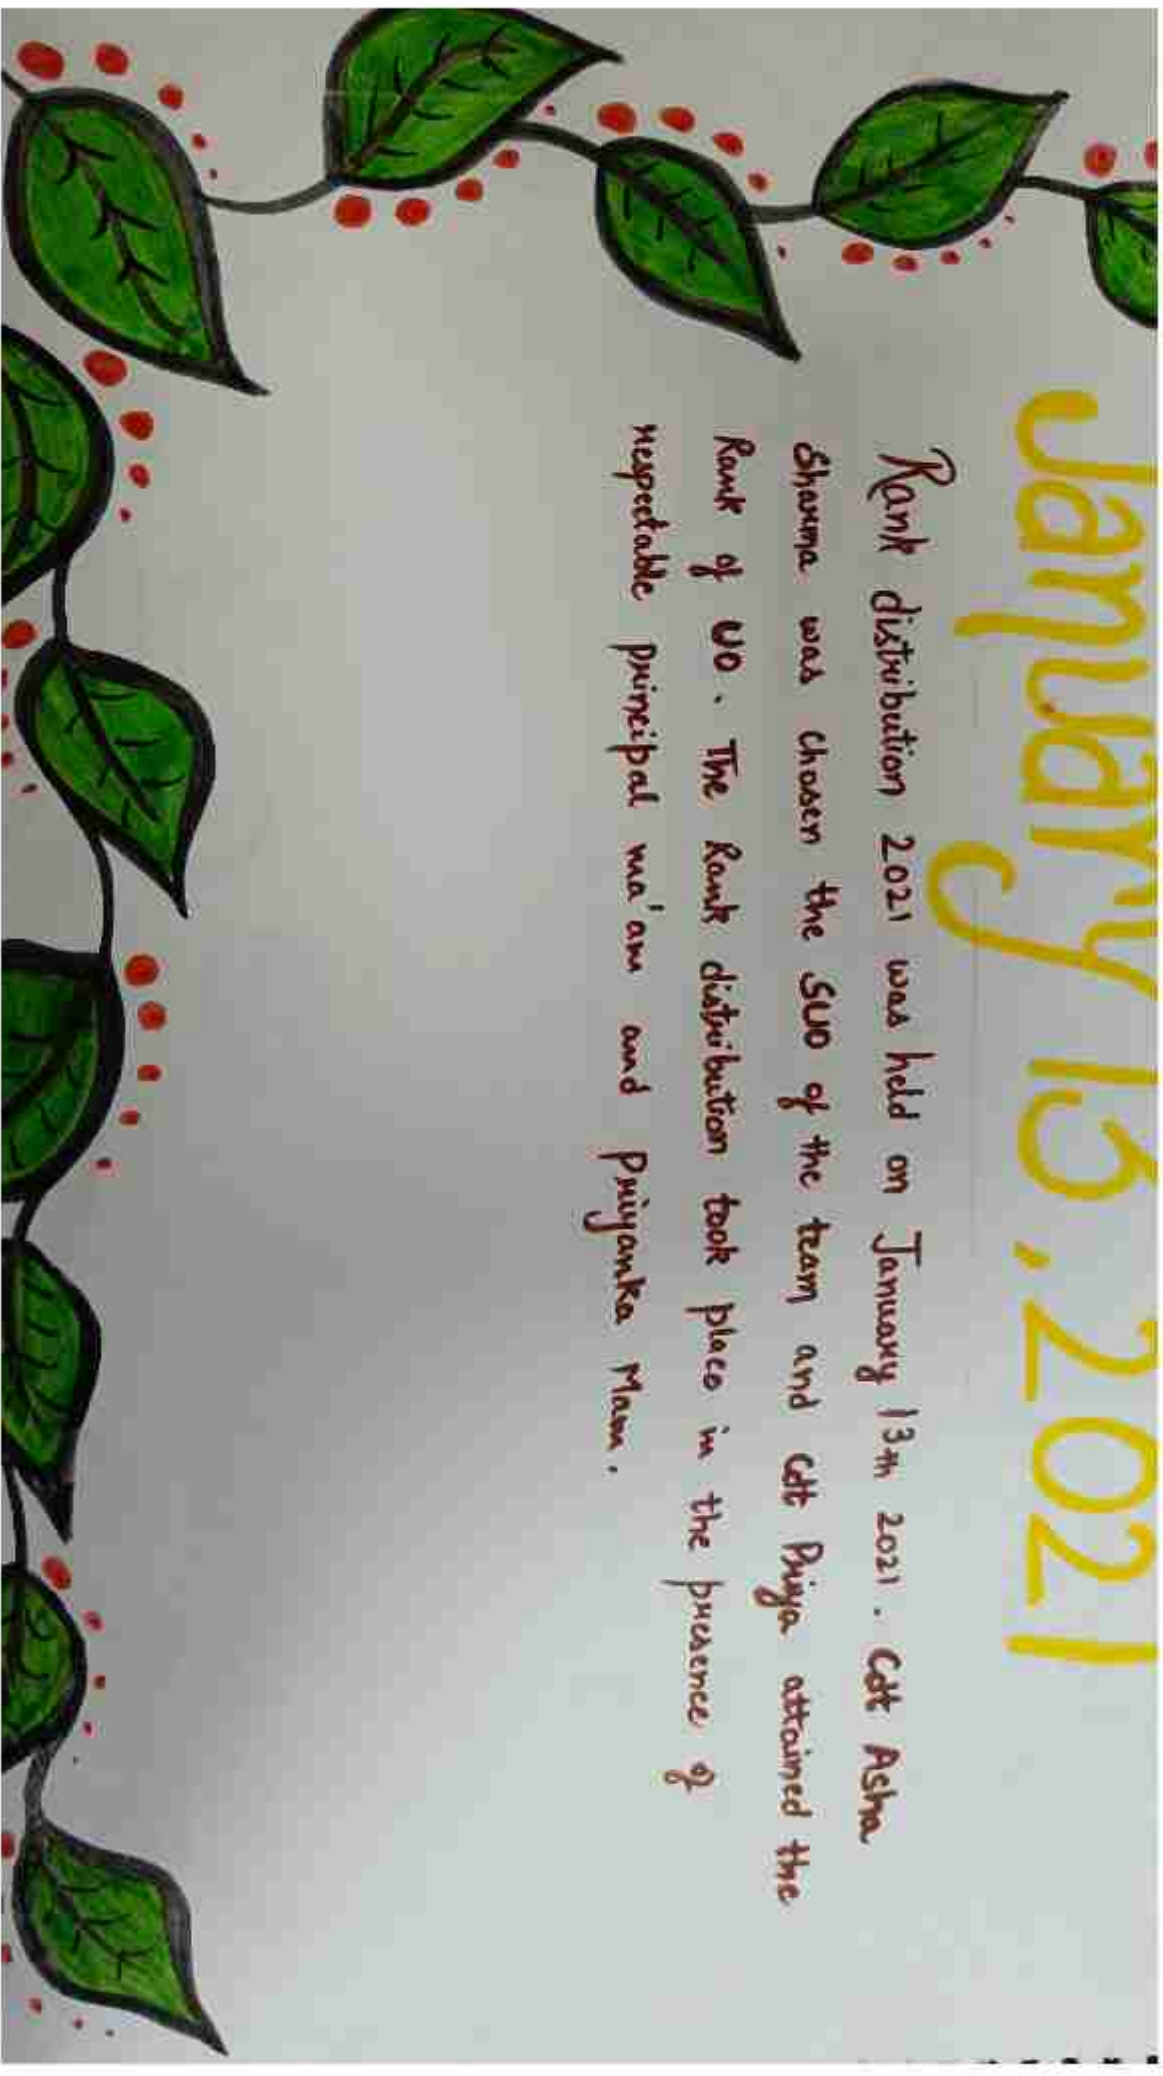 January 13, 2021
Rank distribution 2021 was held on January 13th 2021. Cdt Asha
Sharma was chosen the SUO of the team and Cdt Priya attained the
Rank of UO. The Rank distribution took place in the presence of
respectable principal ma'am and Priyanka Mam.